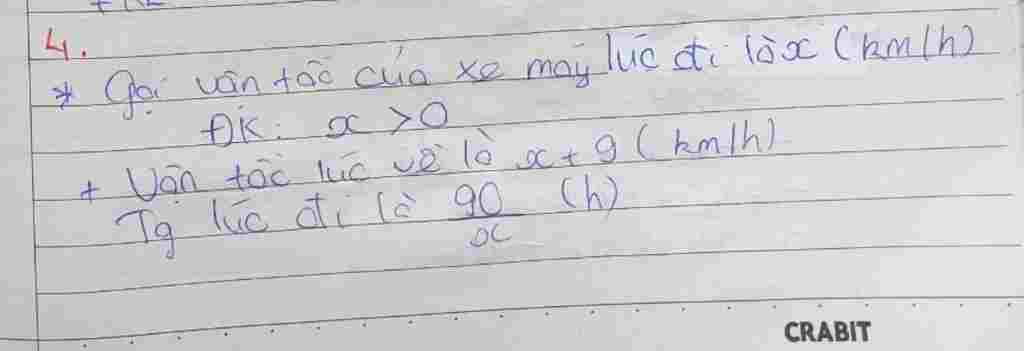 4.
* Gọi vân tốc của xe máy lúc đi là x (km/h)
ĐK: x > 0
+ Vận tốc lúc về là x + 9 (km/h)
Tg lúc đi là 90/x (h)
CRABIT